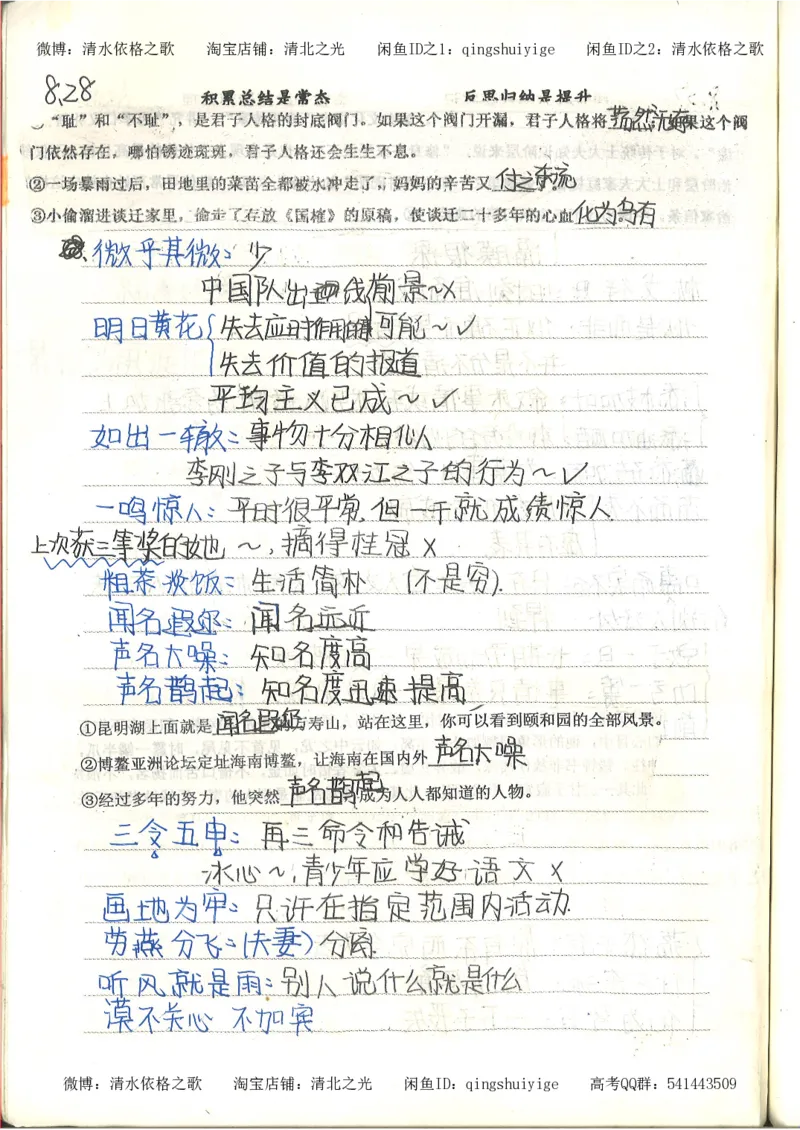 微博：清水依格之歌 淘宝店铺：清北之光 闲鱼ID之1：qingshuiyige 闲鱼ID之2：清水依格之歌
8.28
积累总结是常态 反思归纳是提升
“耻”和“不耻”，是君子人格的封底阀门。如果这个阀门开漏，君子人格将荡然无存如果这个阀
门依然存在，哪怕锈迹斑斑，君子人格还会生生不息。
②一场暴雨过后，田地里的菜苗全都被水冲走了，妈妈的辛苦又付之东流
③小偷溜进谈迁家里，偷走了存放《国榷》的原稿，使谈迁二十多年的心血化为乌有
微乎其微：少
中国队出线前景～×
明日黄花{失去应时作用的可能～✓
失去价值的报道
平均主义已成～✓
如出一辙：事物十分相似人
李刚之子与李双江之子的行为～✓
一鸣惊人：平时很平常，但一干就成绩惊人
上次获三等奖的她～，摘得桂冠×
粗茶淡饭：生活简朴 (不是穷).
闻名遐迩：闻名远近
声名大噪：知名度高
声名鹊起：知名度迅速提高
①昆明湖上面就是闻名遐迩的万寿山，站在这里，你可以看到颐和园的全部风景。
②博鳌亚洲论坛定址海南博鳌，让海南在国内外声名大噪
③经过多年的努力，他突然声名鹊起成为人人都知道的人物。
三令五申：再三命令和告诫
冰心～，青少年应学好语文×
画地为牢：只许在指定范围内活动
劳燕分飞：(夫妻)分离
听风就是雨：别人说什么就是什么
漠不关心 不加宾
微博：清水依格之歌 淘宝店铺：清北之光 闲鱼ID：qingshuiyige 高考QQ群：541443509